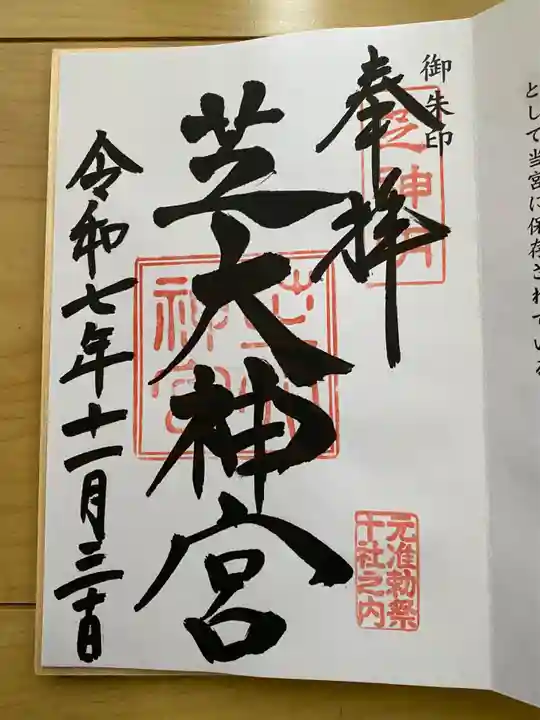 として当宮に保存されている
御朱印
奉拝
芝神明
芝大神宮
芝大神宮
元准勅祭
十社之内
令和七年十一月三十日